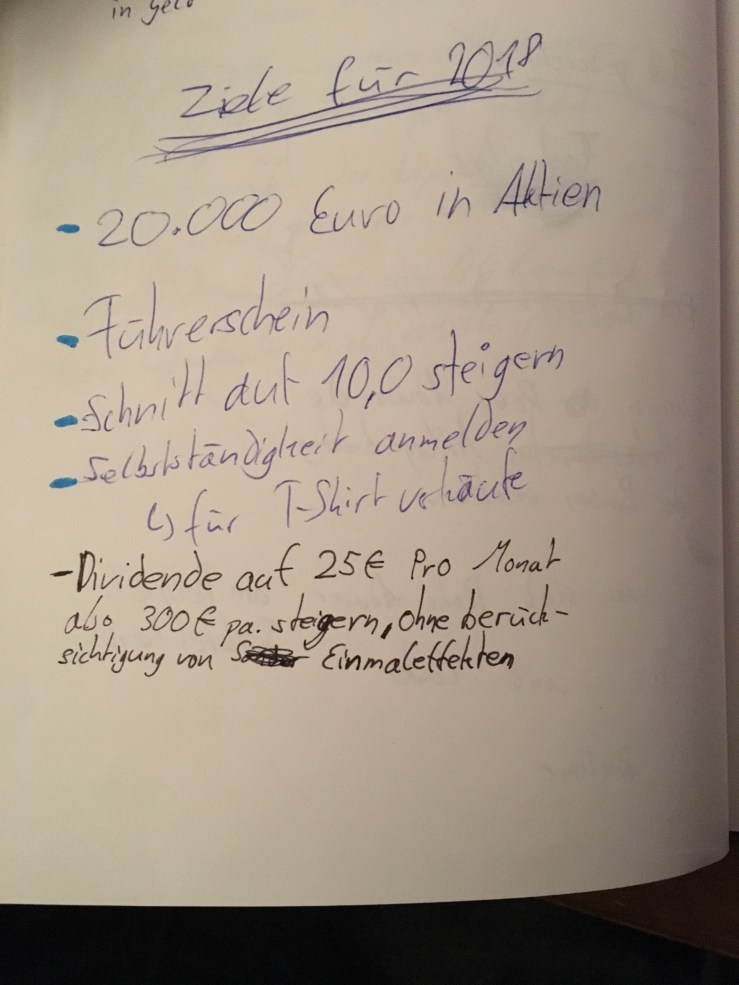 in Geld
Ziele für 2018
- 20.000 Euro in Aktien
- Führerschein
- Schnitt auf 10,0 steigern
- Selbstständigkeit anmelden
↳ für T-Shirt verkäufe
- Dividende auf 25€ Pro Monat
also 300€ pa. steigern, ohne berück-
sichtigung von Einmaleffekten